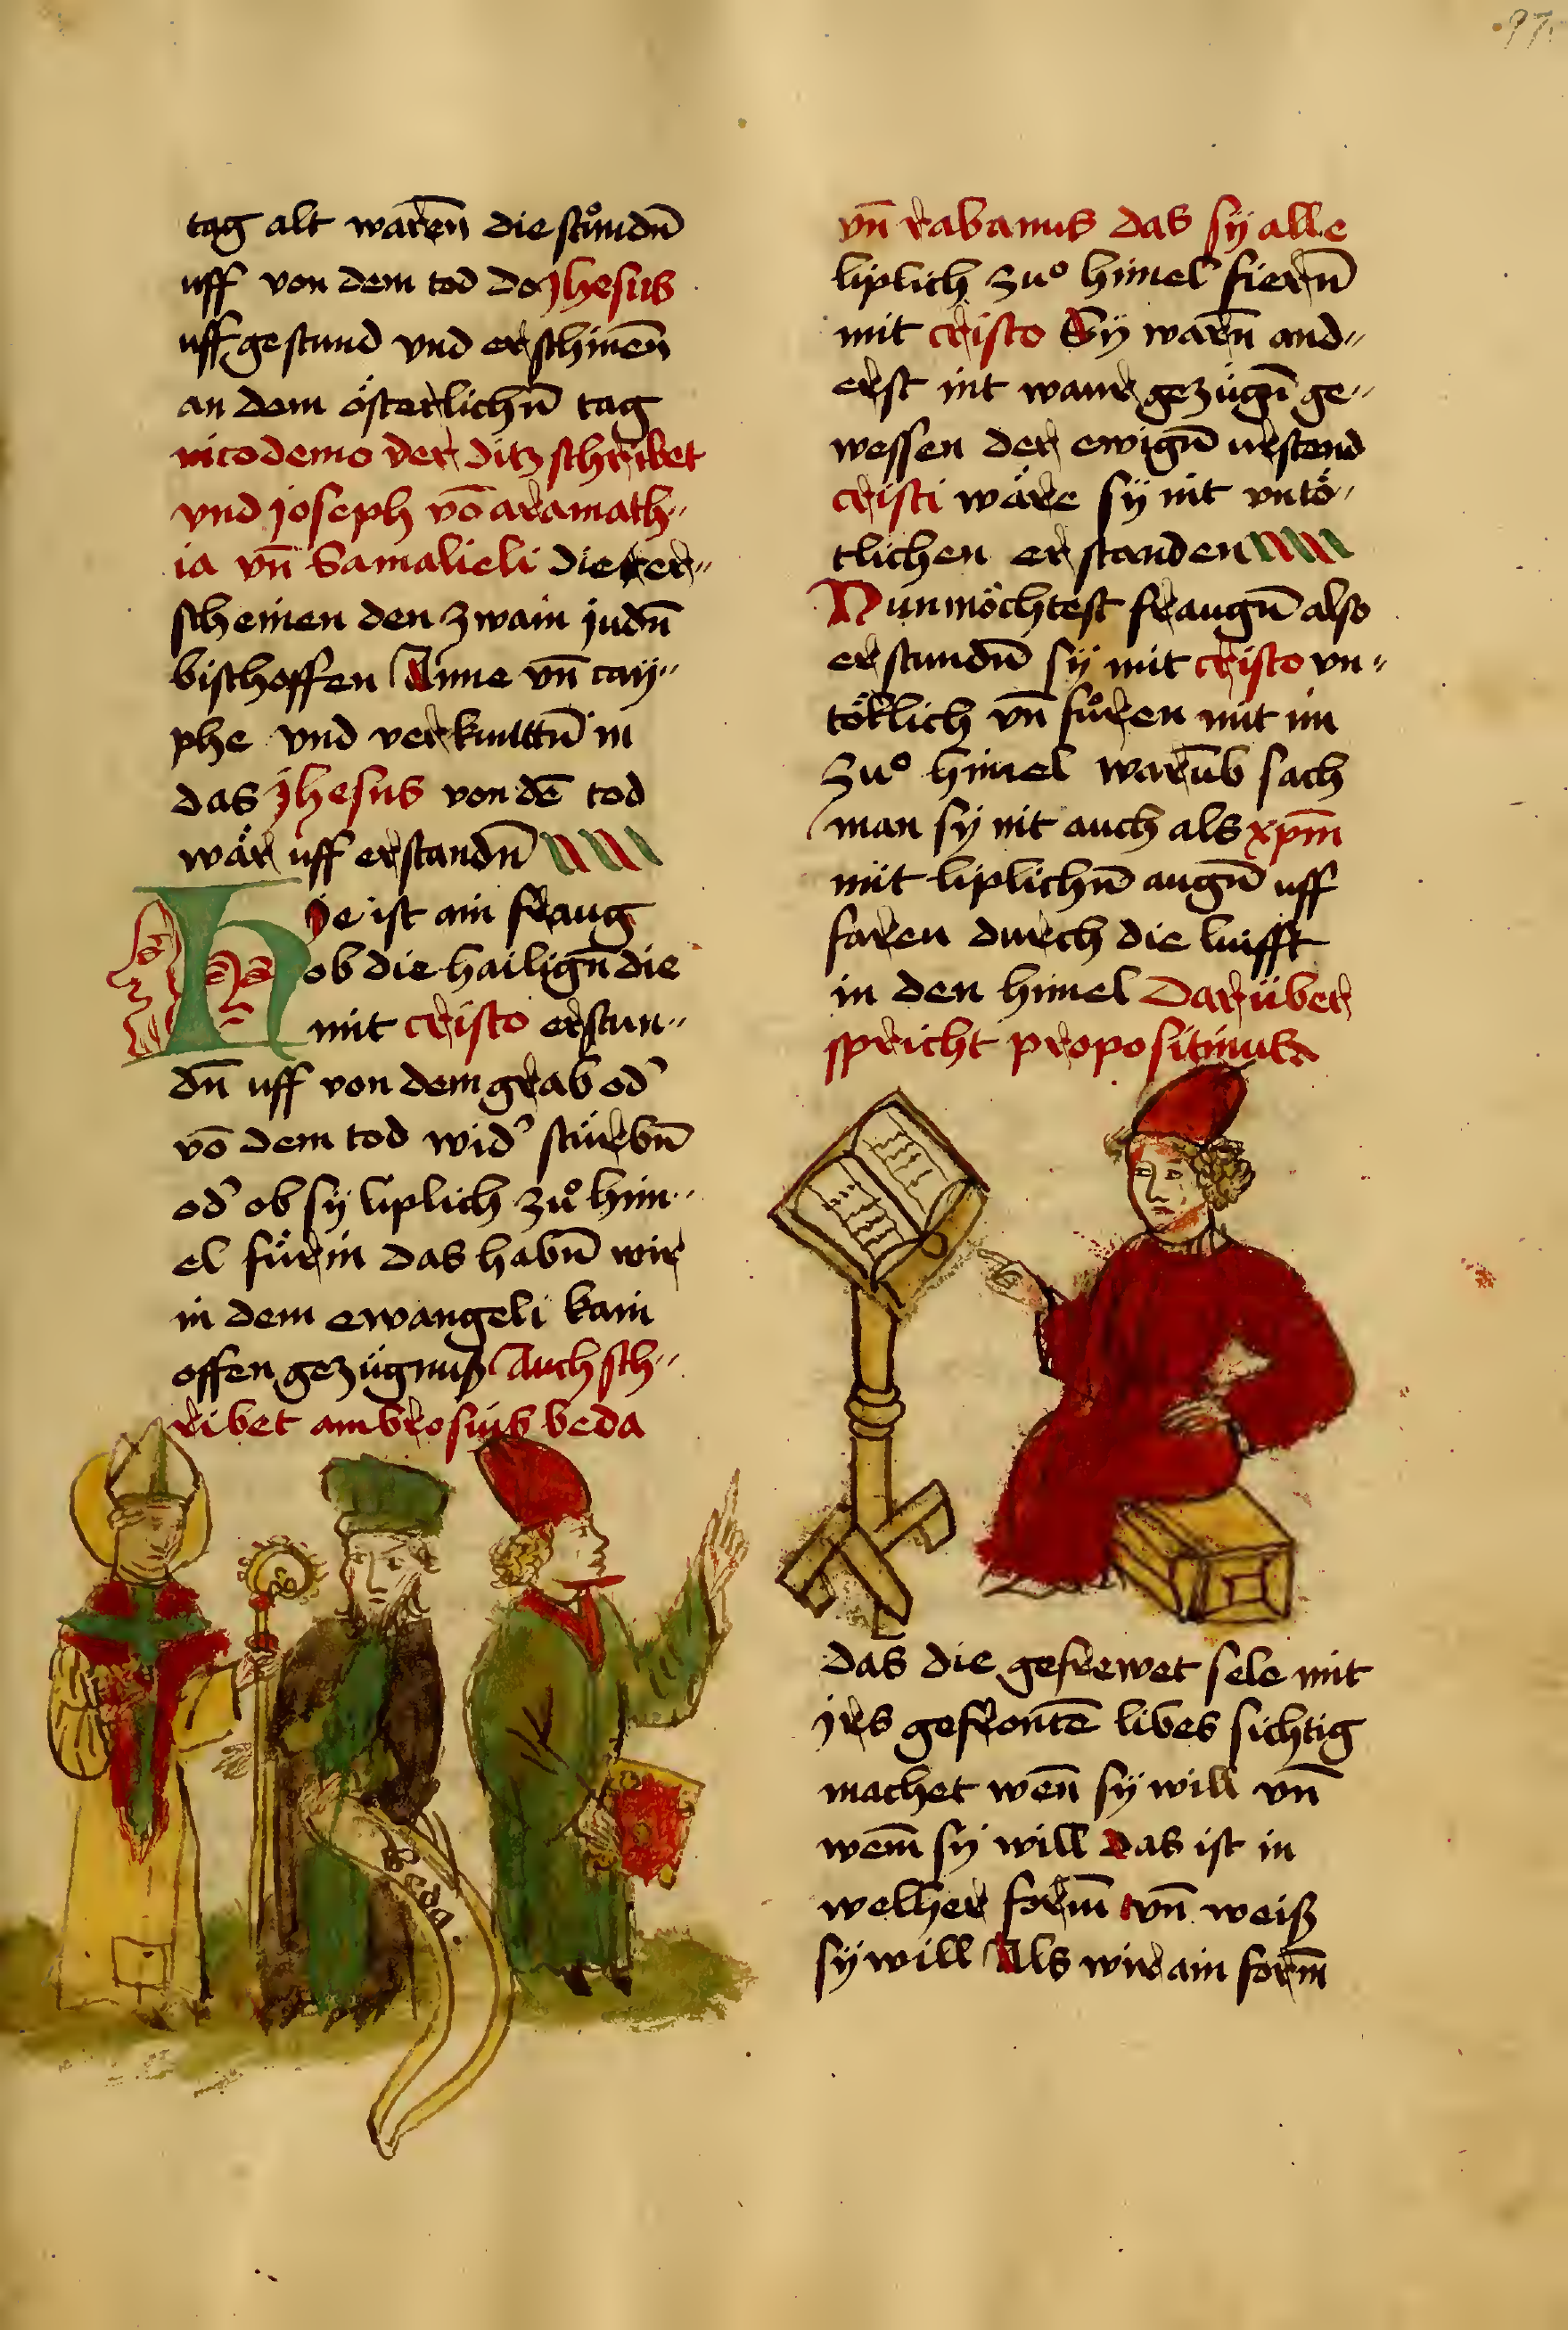 97.
tag alt waren̄ die stůndn̄
uff von dem tod do jhesus
uff gestund vnd erschinen̄
an dem österlichn̄ tag
nicodemo der ditz schribet
vnd joseph vō aramath„
ia vn̄ Gamalieli die er„
scheinen den zwain judn̄
bischoffen Anne vn̄ cay„
phe vnd verkunttn̄ in
das jhesus von dē tod
wär uff erstandn̄
Hie ist ain fraug
ob die hailign̄ die
mit cristo erstun„
dn̄ uff von dem grab od̕
vō dem tod wid̕ stürbn̄
od̕ ob sÿ liplich zů him„
el fürin das habn̄ wir
in dem ewangeli kain
offen gezügnuß Auch sch„
ribet ambrosius beda
Beda.
vn̄ rabanus das sÿ alle
liplich zuͦ himel fiern̄
mit cristo Sÿ warn̄ and„
erst nit waur gezügn̄ ge„
wessen der ewign̄ urstend
cristi wäre sÿ nit vntö„
tlichen erstanden
Nun möchtest fraugn̄ also
erstundn̄ sÿ mit cristo vn„
tötlich vn̄ fůren mit im
zuͦ himel warūb sach
man sÿ nit auch als xp̄m
mit liplichn̄ augn̄ uff
faren durch die lufft
in den himel Darüber
spricht propositinus
das die gefrewet sele mit
jrs gefrontē libes sichtig
machet wen̄ sÿ will vn̄
wem̄ sÿ will das ist in
welher form̄ vn̄ weiß
sÿ will Als wir ain form̄